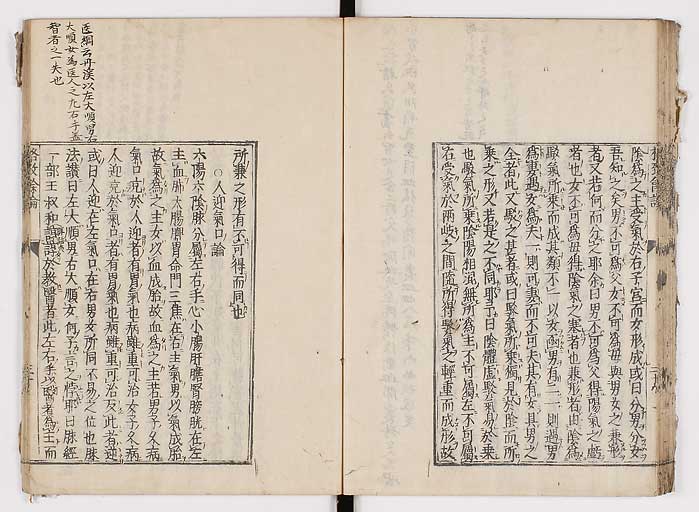 陰爲之主受氣於右子宮而女形成或曰分男分女
吾知之矣男不可爲父女不可爲母與男女之兼形
者又若何而分之耶余曰男不可爲父得陽氣之虧
者也女不可爲母得陰氣之塞者也兼形者由陰爲
駁氣所乘而成其類不一以女函男有二一則遇男
爲妻遇女爲夫一則可妻而不可夫其有女具男之
全者此又駁之甚者或曰駁氣所乘獨見於陰而所
乘之形又若是之不同耶予曰陰體虛駁氣易於乘
也駁氣所乘陰陽相混無所爲主不可屬左不可屬
右受氣於兩歧之間隨所得駁氣之輕重而成形故
所兼之形有不可得而同也
○人迎氣口論
六陽六陰脉分屬左右手心小腸肝膽腎膀胱在左
主血肺大腸脾胃命門三焦在右主氣男以氣成胎
故氣爲之主女以血成胎故血爲之主若男子久病
氣口充於人迎者有胃氣也病雖重可治女子久病
人迎充於氣口者有胃氣也病雖重可治反此者逆
或曰人迎在左氣口在右男女所同不易之位也脉
法讚曰左大順男右大順女何子言之悖耶曰脉經
一部王叔和諄諄於教醫者此左右手以醫者爲主而
医綱云丹溪以左大順男右
大順女爲医人之左右手蓋
智者之一失也
格致餘論